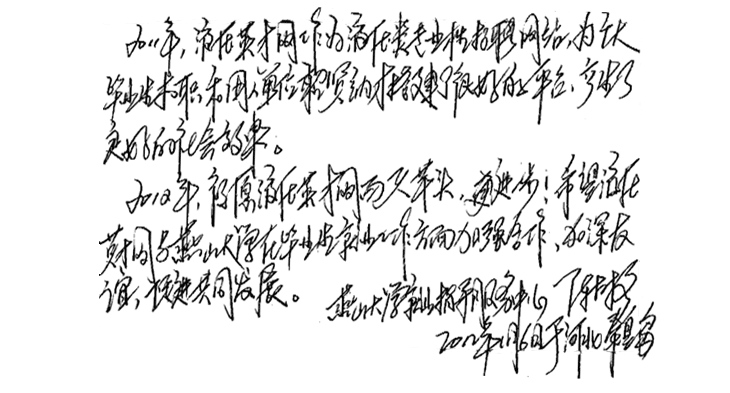 2011年，流体英才网作为流体类专业性招聘网站，为广大
毕业生求职和用人单位招贤纳才搭建了很好的平台，产生了
良好的社会效果。
2012年，祝愿流体英才网百尺竿头，更进一步！希望流体
英才网与燕山大学在毕业生就业工作方面加强合作，加深友
谊，促进共同发展。
燕山大学就业指导服务中心
2012年1月6日于河北秦皇岛